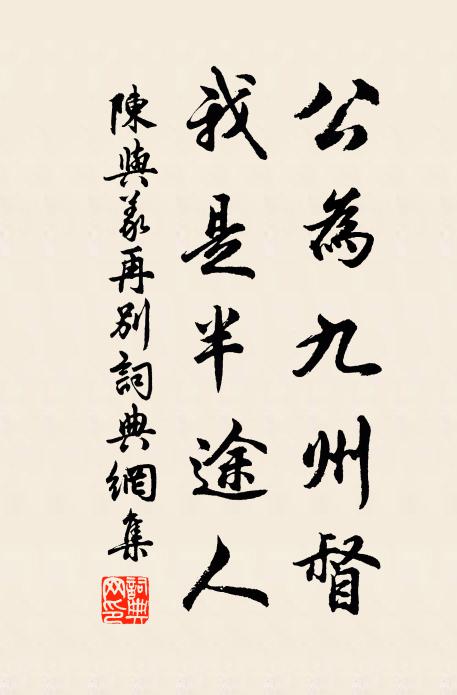 公為九州督
我是半途人
陳與義再別詞典網集
詞典网印